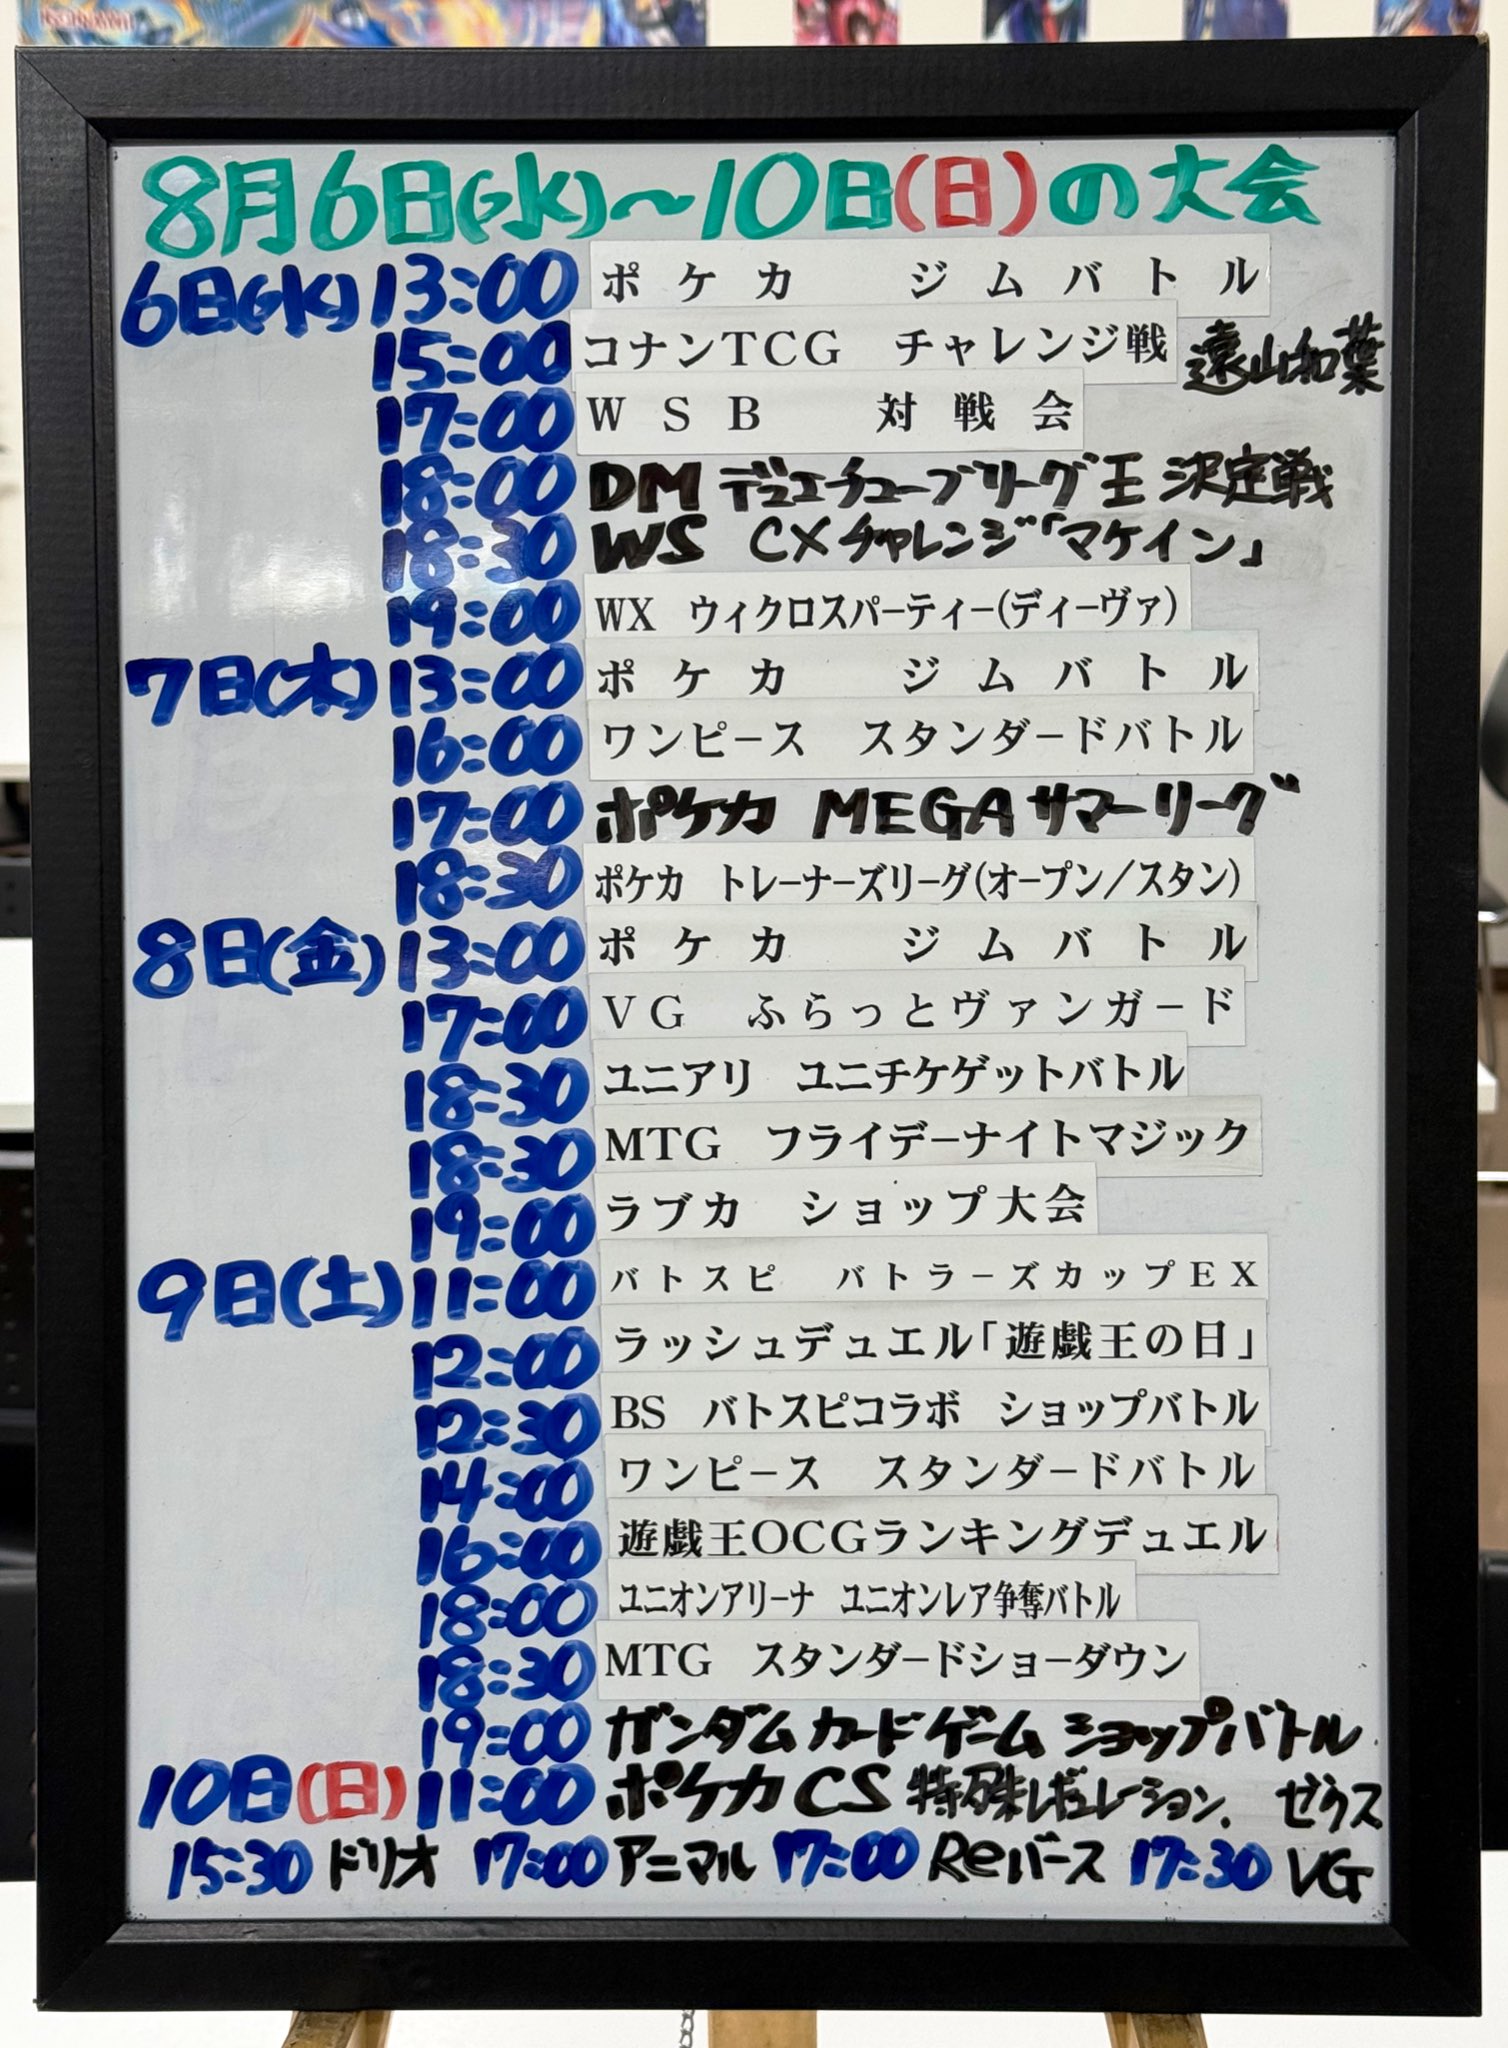 8月6日(水)～10日(日)の大会
6日(水) 13:00 ポケカ ジムバトル
15:00 コナンTCG チャレンジ戦 遠山和葉
17:00 WSB 対戦会
18:00 DM デュエチューブリーグ王決定戦
18:30 WS CXチャレンジ「マケイン」
19:00 WX ウィクロスパーティー(ディーヴァ)
7日(木) 13:00 ポケカ ジムバトル
16:00 ワンピース スタンダードバトル
17:00 ポケカ MEGAサマーリーグ
18:30 ポケカ トレーナーズリーグ(オープン/スタン)
8日(金) 13:00 ポケカ ジムバトル
17:00 VG ふらっとヴァンガード
18:30 ユニアリ ユニチケゲットバトル
18:30 MTG フライデーナイトマジック
19:00 ラブカ ショップ大会
9日(土) 11:00 バトスピ バトラーズカップEX
12:00 ラッシュデュエル「遊戯王の日」
12:30 BS バトスピコラボ ショップバトル
14:00 ワンピース スタンダードバトル
16:00 遊戯王OCGランキングデュエル
18:00 ユニオンアリーナ ユニオンレア争奪バトル
18:30 MTG スタンダードショーダウン
19:00 ガンダムカードゲーム ショップバトル
10日(日) 11:00 ポケカCS 特殊レギュレーション. ゼウス
15:30 ドリオ 17:00 アニマル 17:00 Reバース 17:30 VG